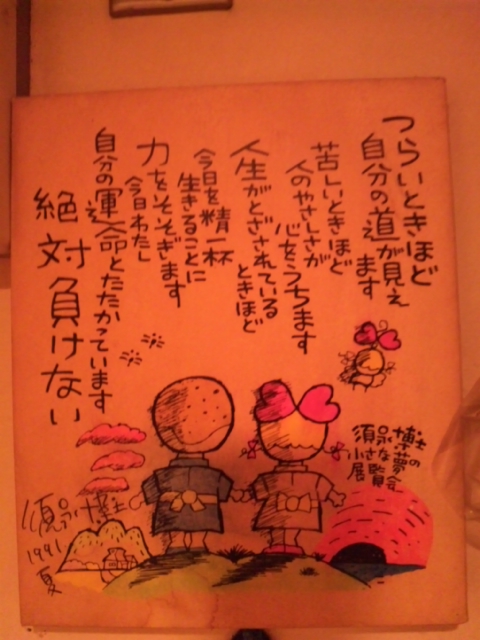 つらいときほど
自分の道が見え
ます
苦しいときほど
人のやさしさが
心をうちます
人生がとざされている
ときほど
今日を精一杯
生きることに
力をそそぎます
今日わたし
自分の運命とたたかっています
絶対負けない
須永博士の
小さな夢の
展覧会
須永博士
1991
夏